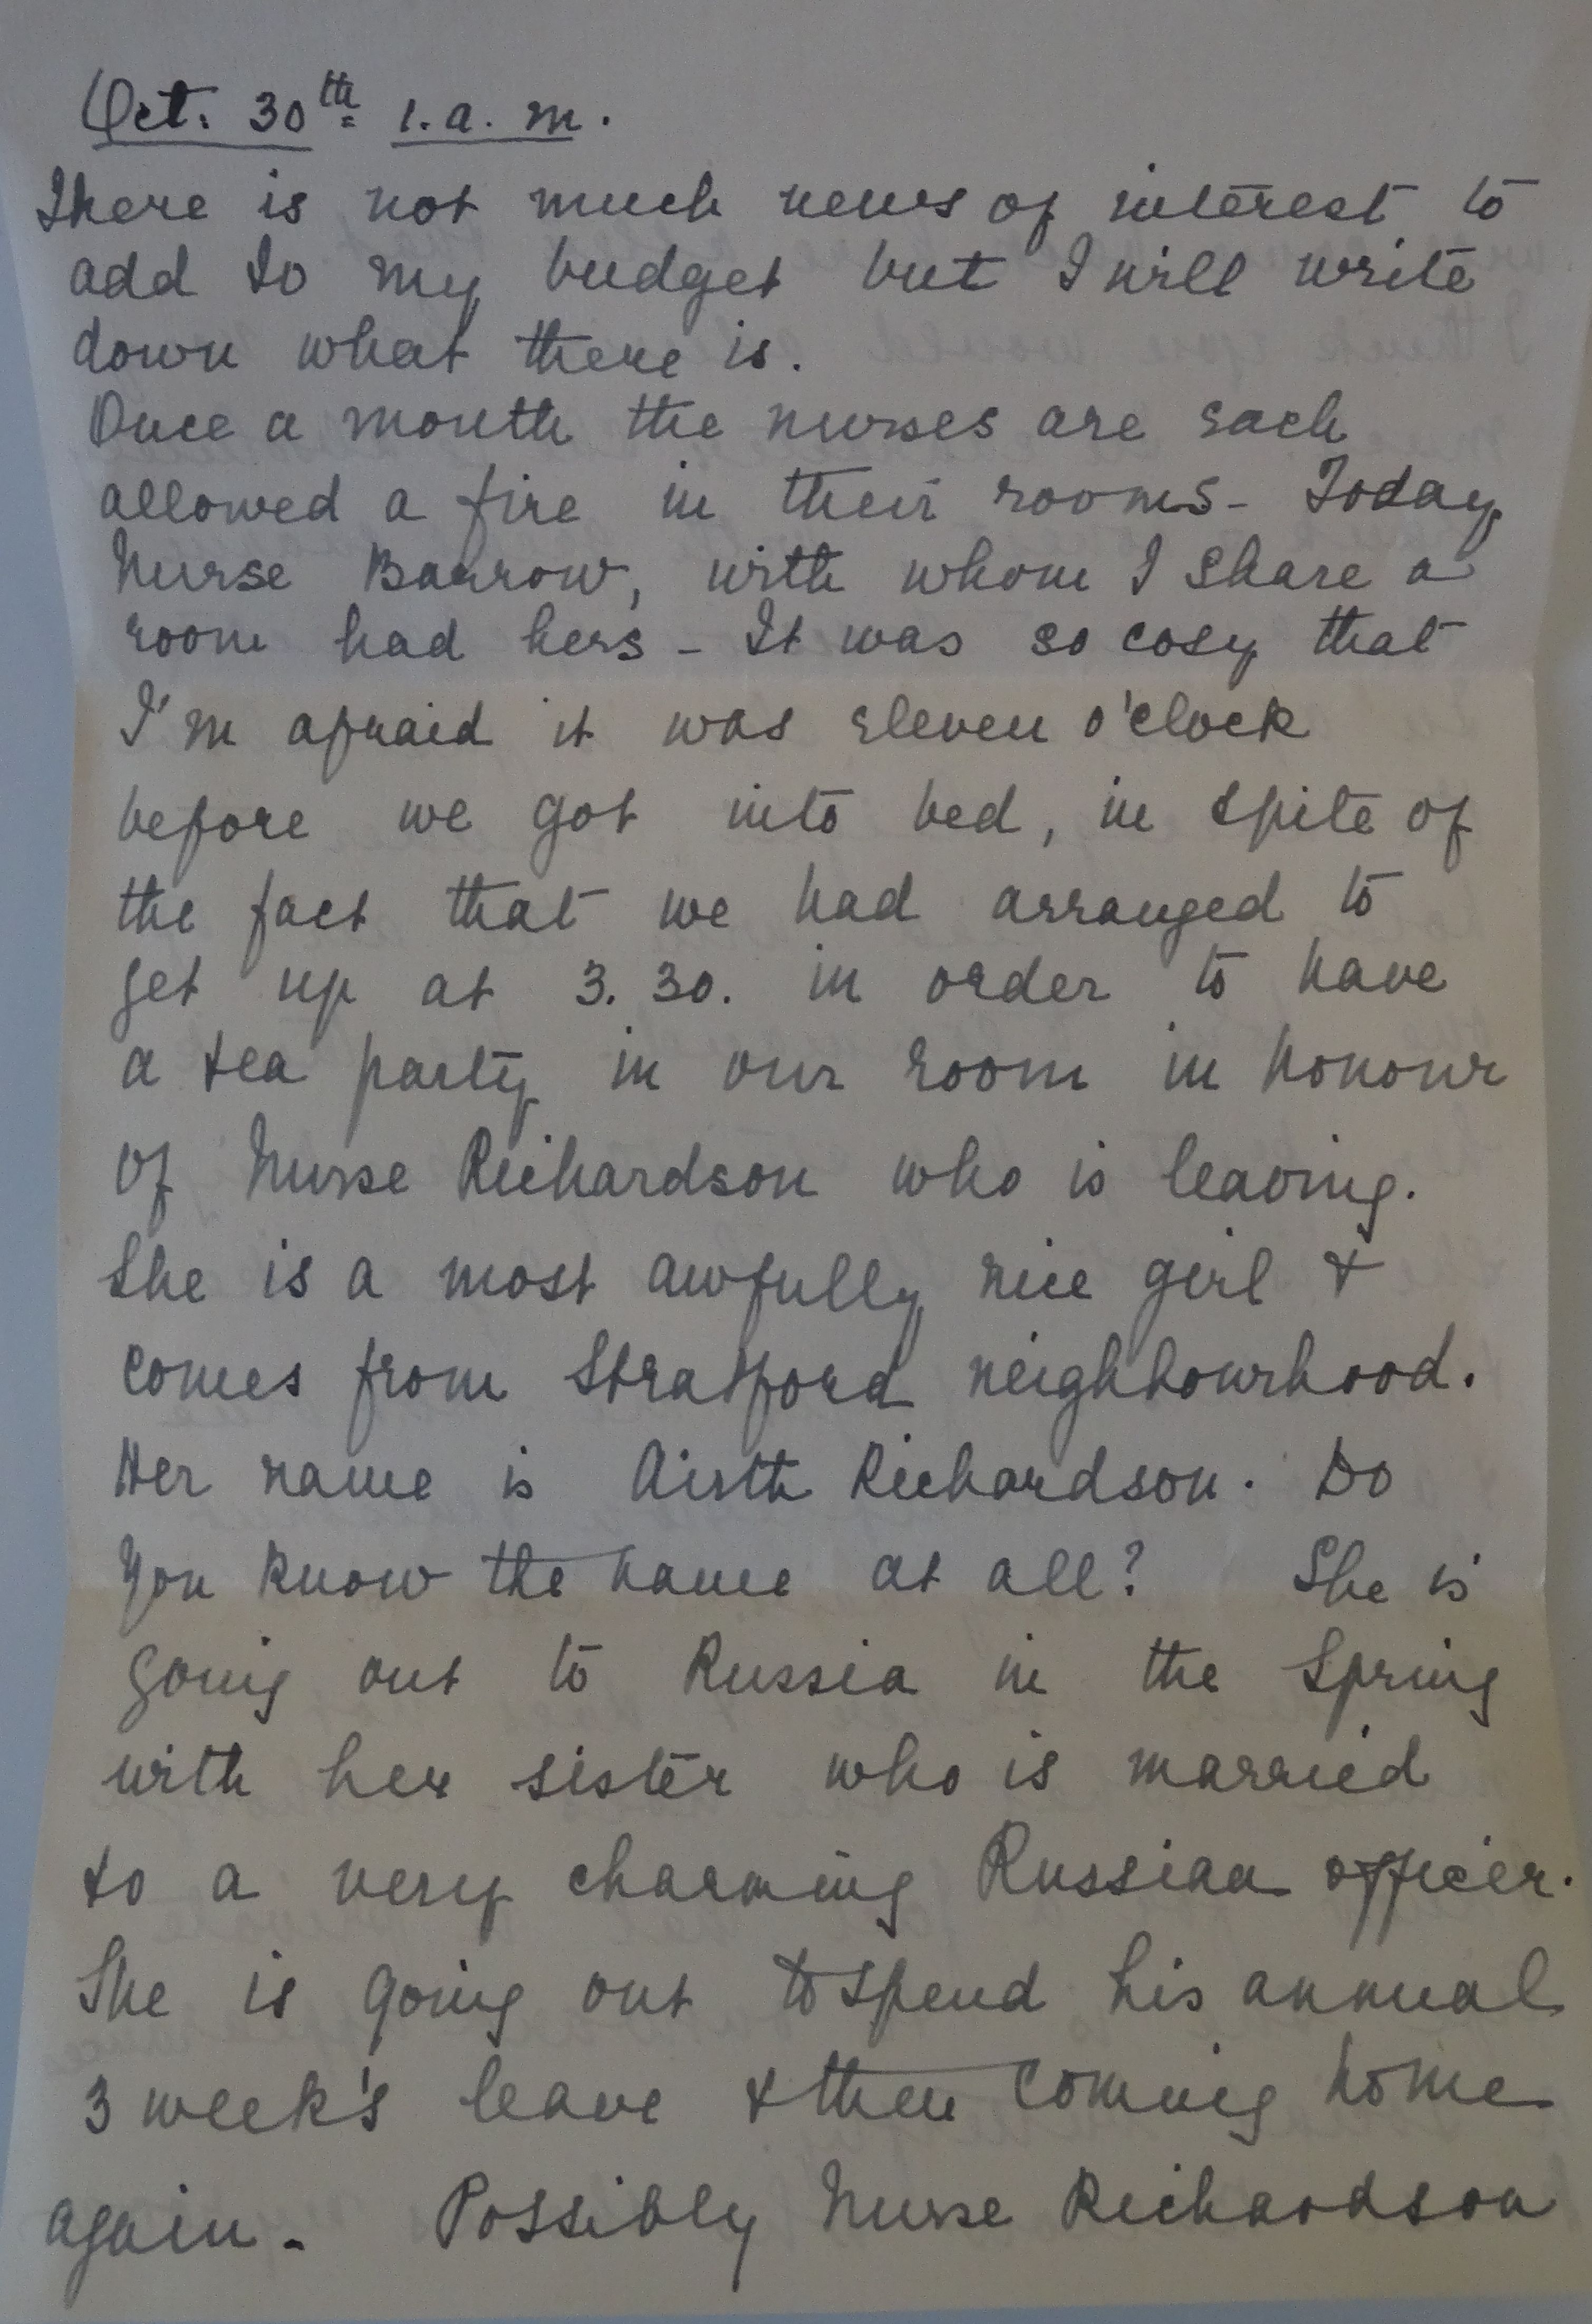 Oct. 30th 1. a. m.
There is not much news of interest to
add to my budget but I will write
down what there is.
Once a month the nurses are each
allowed a fire in their rooms - Today
Nurse Barrow, with whom I share a
room had hers - It was so cosy that
I'm afraid it was eleven o'clock
before we got into bed, in spite of
the fact that we had arranged to
get up at 3. 30. in order to have
a tea party in our room in honour
of Nurse Richardson who is leaving.
She is a most awfully nice girl &
comes from Stratford neighbourhood.
Her name is Airth Richardson. Do
you know the name at all? She is
going out to Russia in the Spring
with her sister who is married
to a very charming Russian officer.
She is going out to spend his annual
3 week's leave & then coming home
again - Possibly Nurse Richardson